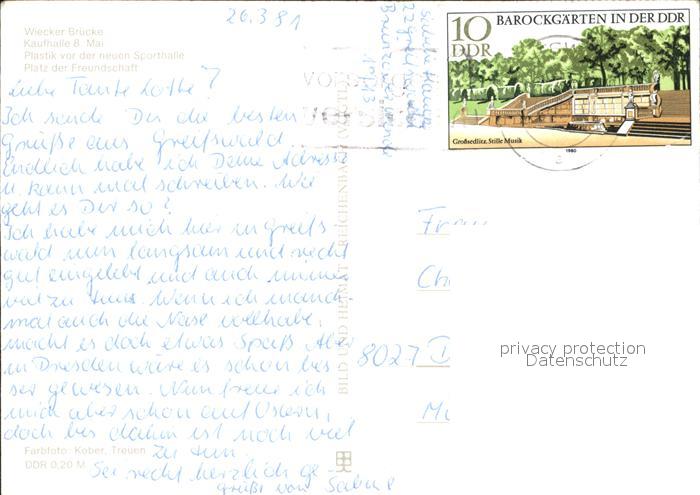 Wiecker Brücke
Kaufhalle 8. Mai
Plastik vor der neuen Sporthalle
Platz der Freundschaft
26.3.81
Liebe Tante Lotte!
Ich sende Dir die besten
Grüße aus Greifswald.
Endlich habe ich Deine Adresse
u. kann mal schreiben. Wie
geht es Dir so?
Ich habe mich hier in Greifs-
wald nun langsam und recht
gut eingelebt und auch immer
viel zu tun. Wenn ich manch-
mal auch die Nase vollhabe,
macht es doch etwas Spaß. Aber
in Dresden wäre es schon bes-
ser gewesen. Nun freue ich
mich aber schon auf Ostern,
doch bis dahin ist noch viel
zu tun.
Sei recht herzlich ge-
grüßt von Sabine
Farbfoto: Kober, Treuen
DDR 0,20 M
BILD UND HEIMAT REICHENBACH
22 Greifswald
10
DDR
BAROCKGÄRTEN IN DER DDR
Großsedlitz, Stille Musik
1980
Frau
Ch
8027 D
privacy protection
Datenschutz